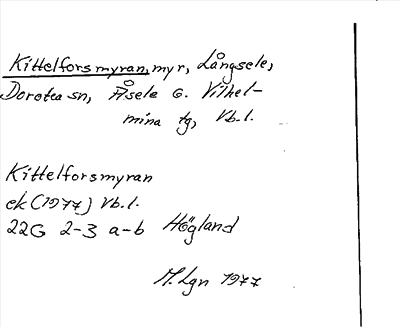 Kittelforsmyran, myr, Långsele,
Dorotea sn, Åsele o. Vilhel-
mina tg, Vb.l.
Kittelforsmyran
ek (1977) Vb.l.
22G 2-3 a-b Högland
M. Lgn 1977